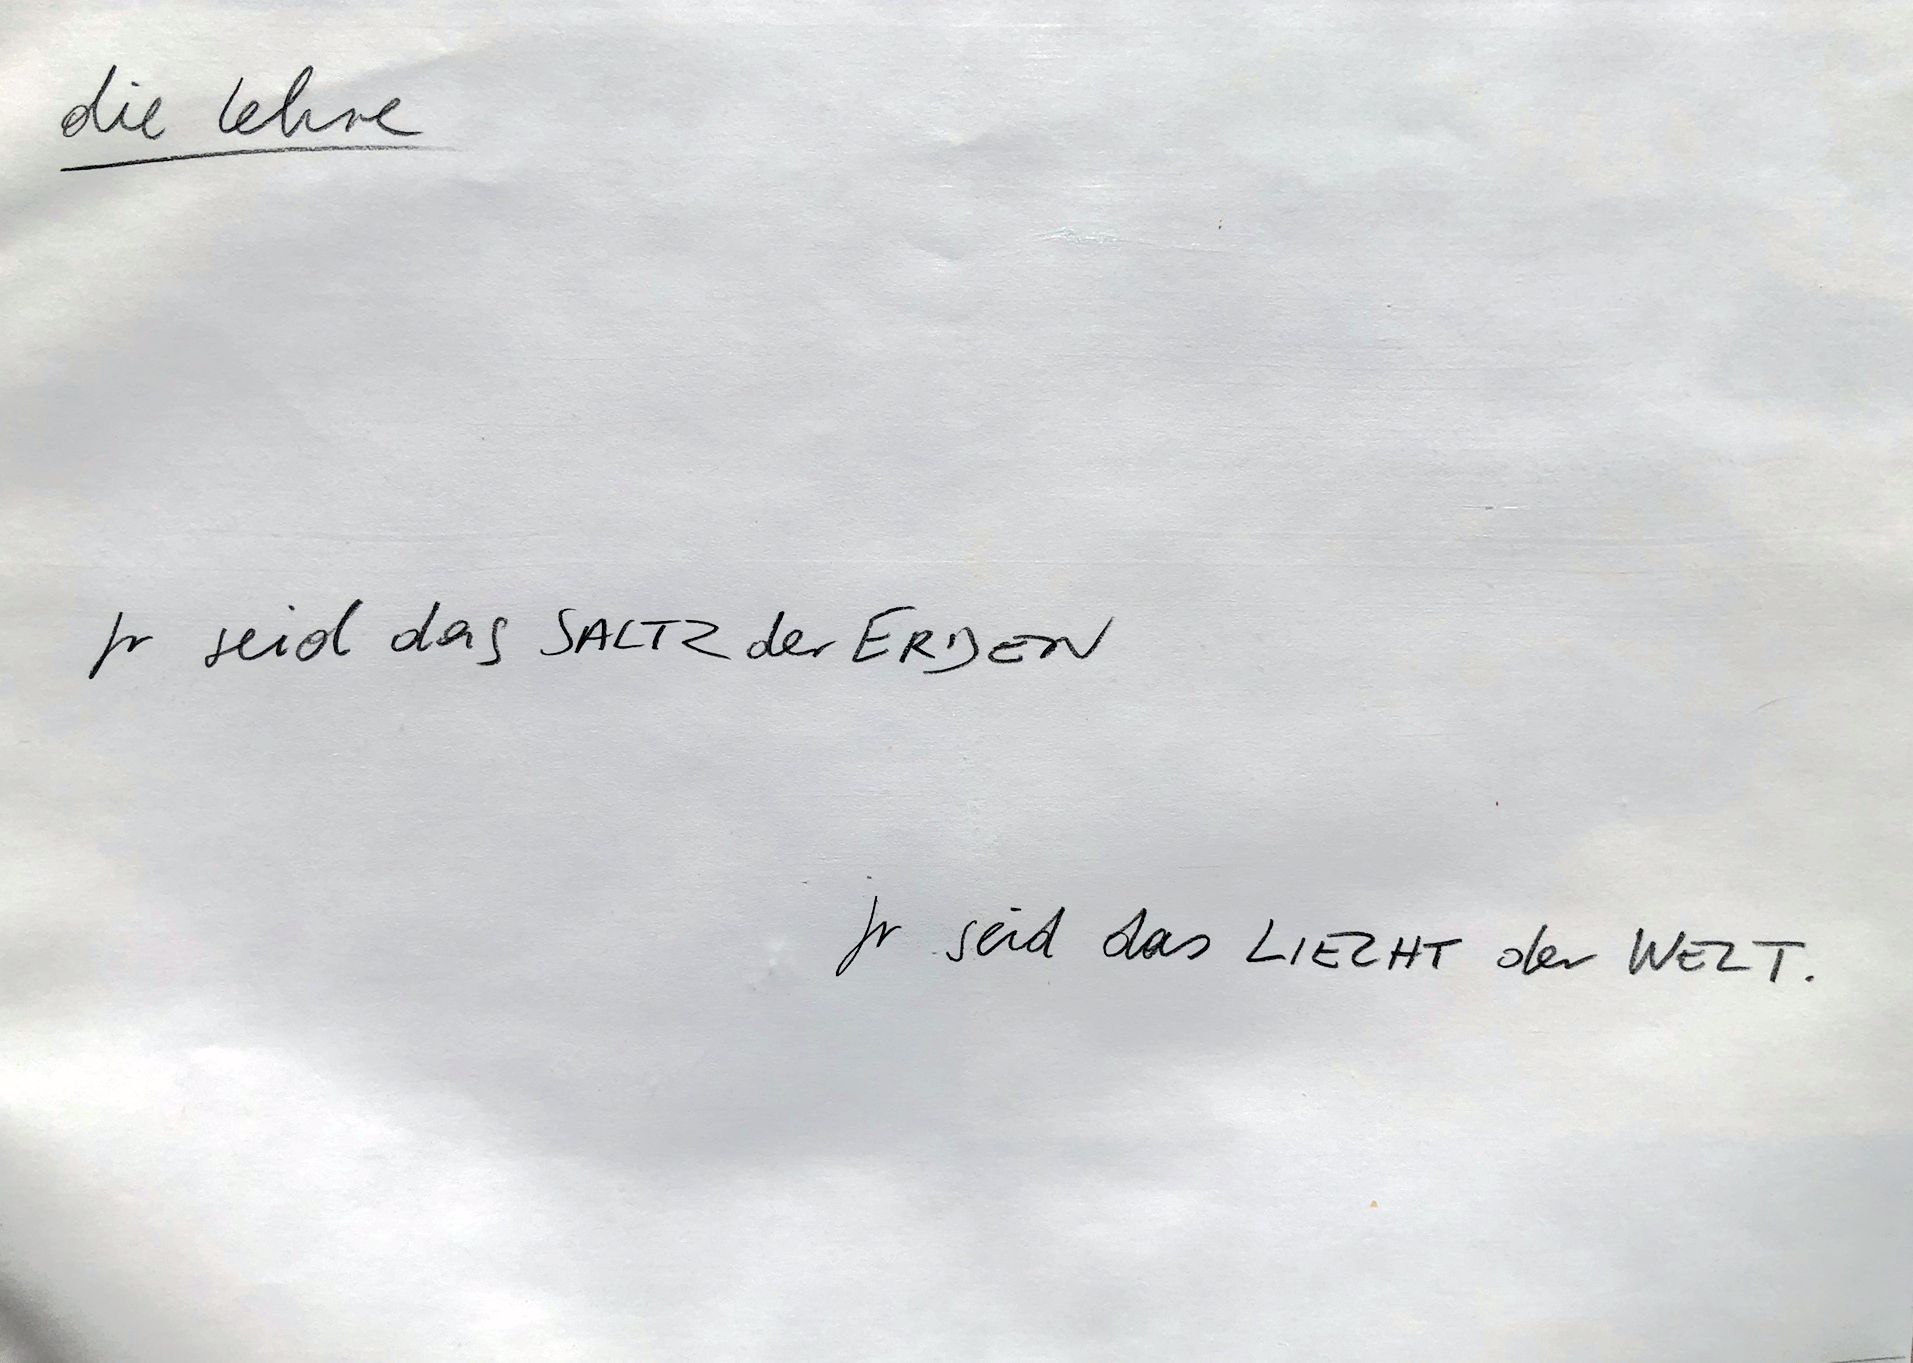 die Lehre
Jr seid das SALTZ der ERDEN
Jr seid das LIECHT der WELT.